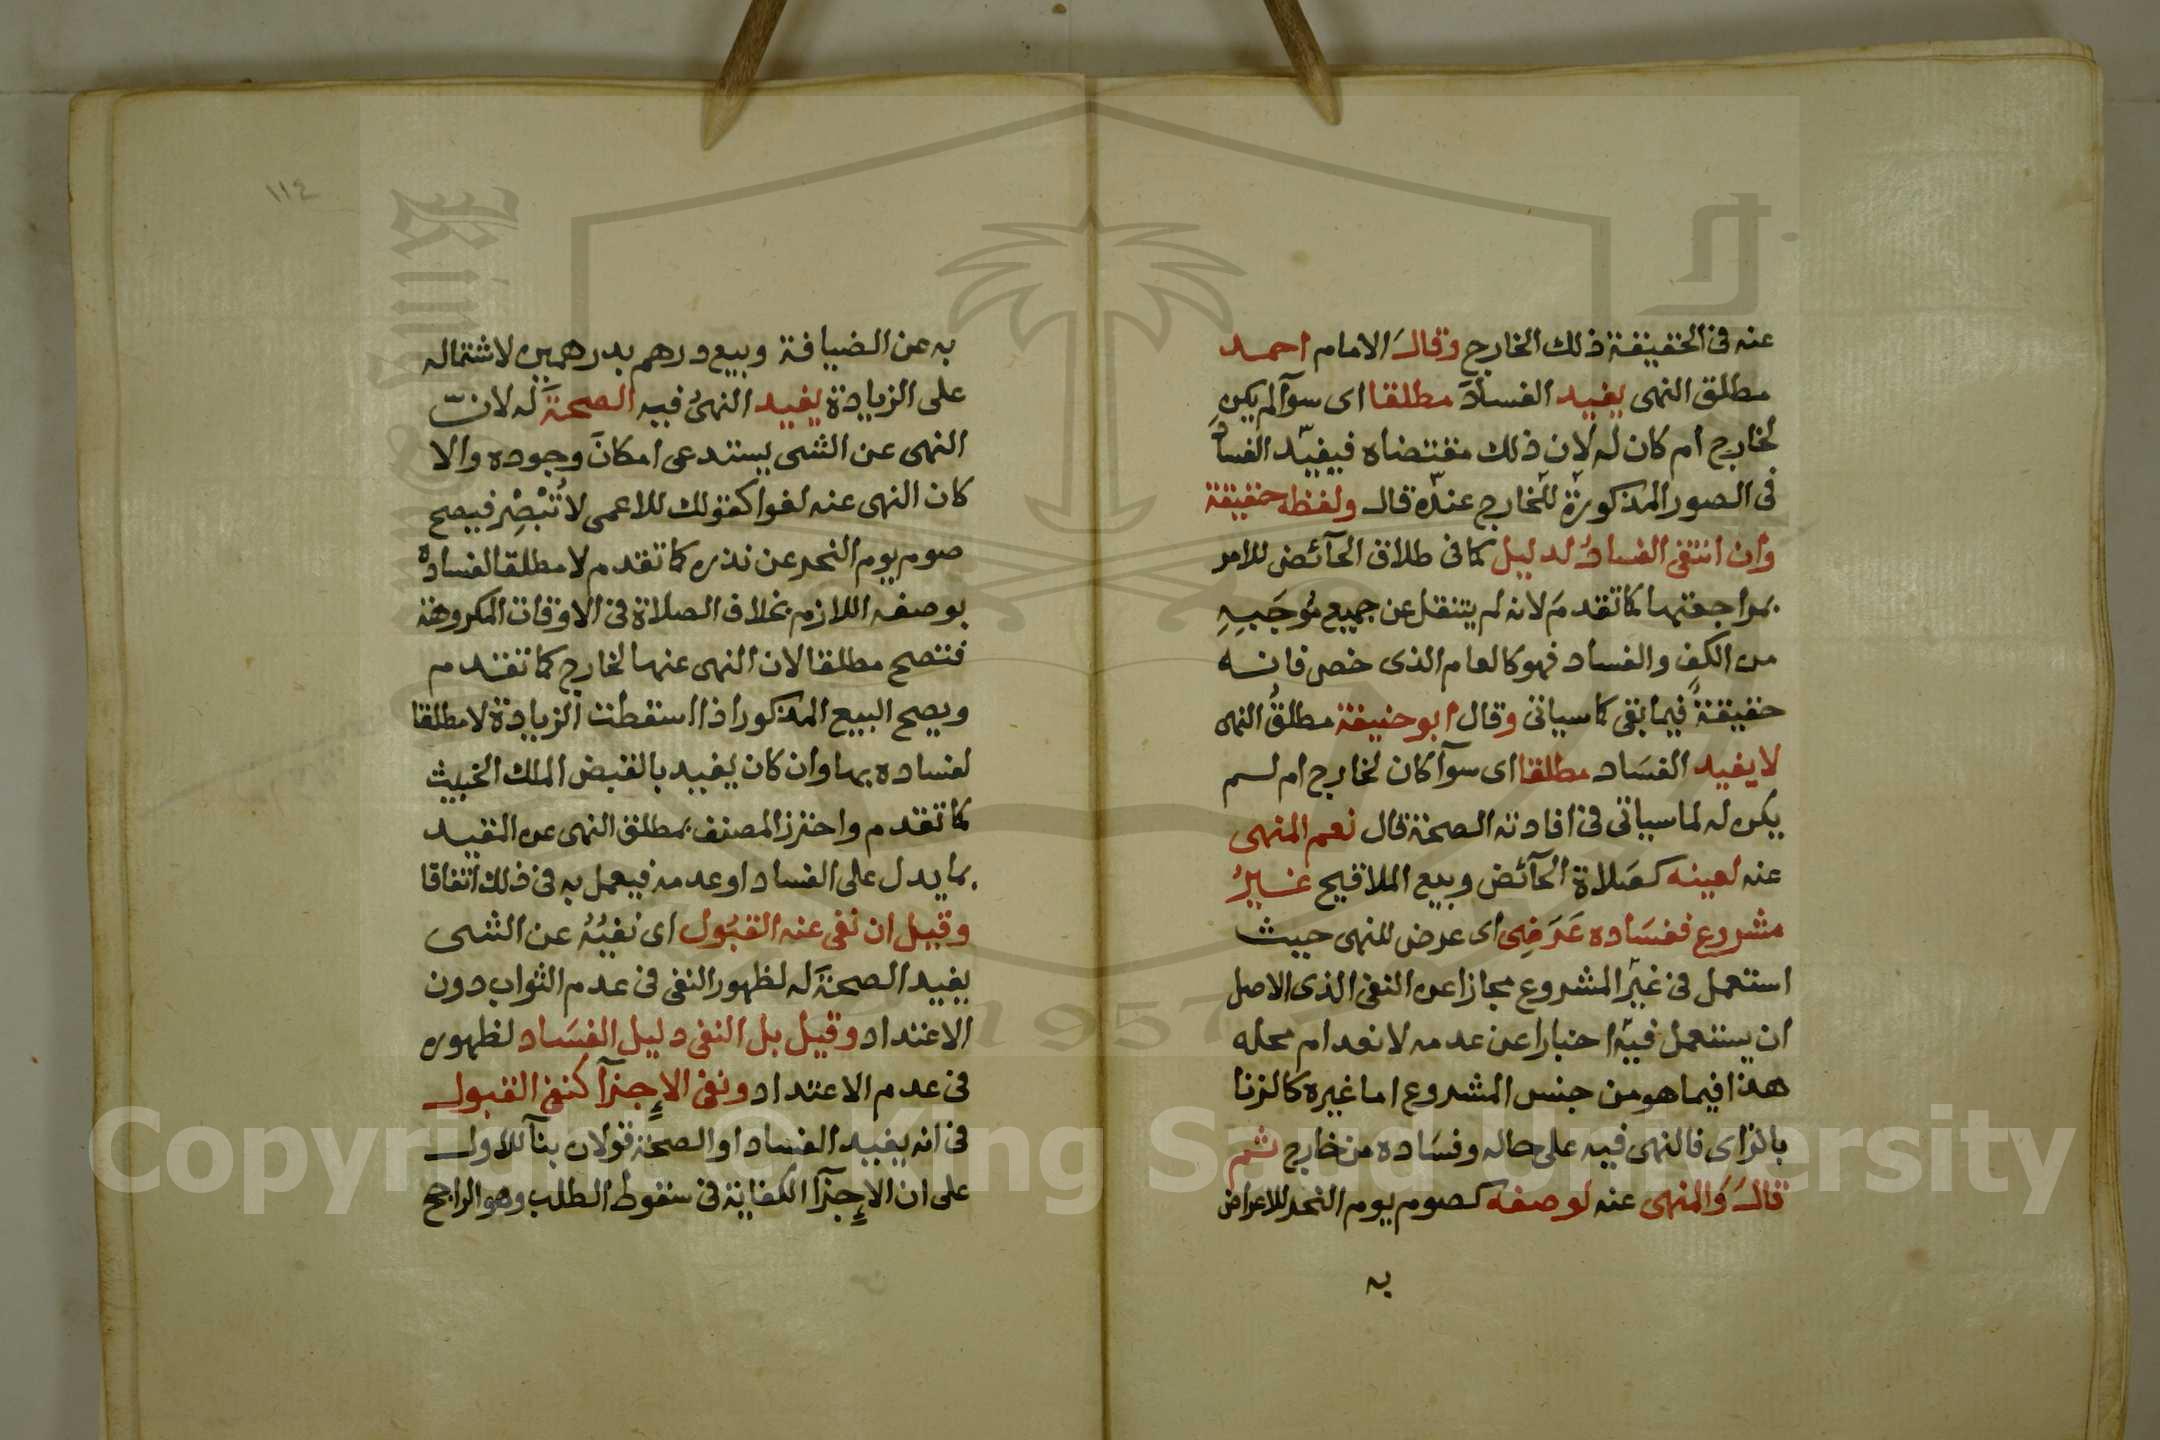 عنه فى الحقيقة ذلك الخارج وقال الامام احمد
مطلق النهى يفيد الفساد مطلقا اى سوآ لم يكن
لخارج ام كان له لان ذلك مقتضاه فيفيد الفساد
فى الصور المذكورة للخارج عنده قال ولفظه حقيقة
وان انتفى الفساد لدليل كما فى طلاق الحآئض للامر
بمراجعتها كما تقدم لانه لم ينتقل عن جميع مُوجَبِهِ
من الكف والفساد فهو كالعام الذى خص فانه
حقيقةً فيما بقى كما سياتى وقال ابو حنيفة مطلقُ النهى
لا يفيد الفسَاد مطلقا اى سوآ كان لخارج ام لم
يكن له لما سياتى فى افادته الصحة قال نعم المنهى
عنه لعينه كصَلاة الحآئض وبيع الملاقيح غيرُ
مشروع ففسَاده عَرَضِى اى عرض للنهى حيث
استعمل فى غير المشروع مجازا عن النفى الذى الاصل
ان يستعمل فيه اخبارا عن عدمه لانعدام محله
هذا فيما هو من جنس المشروع اما غيره كالزنا
بالزاى فالنهى فيه على حاله وفسَاده من خارج ثم
قالَ وَالمنهى عنه لوصفه كصوم يوم النحر للاعراض
به
١١٤
به عن الضيافة وبيع درهم بدرهمين لاشتماله
على الزيادة يفيد النهىُ فيه الصحةَ له لانّ
النهى عن الشى يستدعى امكانَ وجوده والا
كان النهى عنه لغوا كقولك للاعمى لا تُبْصِرْ فيصح
صوم يوم النحر عن نذره كما تقدم لا مطلقا لفساده
بوصفه اللازم بخلاف الصلاة فى الاوقات المكروهة
فتصح مطلقا لان النهى عنها لخارج كما تقدم
ويصح البيع المذكور اذا اسقطت الزيادة لا مطلقا
لفساده بها وان كان يفيد بالقبض الملك الخبيث
كما تقدم واحترز المصنف بمطلق النهى عن المقيد
بما يدل على الفساد او عدمه فيعمل به فى ذلك اتفاقا
وقيل ان نفى عنه القبُول اى نفيُهُ عن الشى
يفيد الصحةَ له لظهور النفى فى عدم الثواب دون
الاعتداد وقيل بل النفى دليل الفسَاد لظهوره
فى عدم الاعتداد ونفى الإجزآ كنفى القبول
فى انه يفيد الفساد او الصحة قولان بنآ للاول
على ان الإجزآ الكفاية فى سقوط الطلب وهو الراجح
Copyright © King Saud University
1957